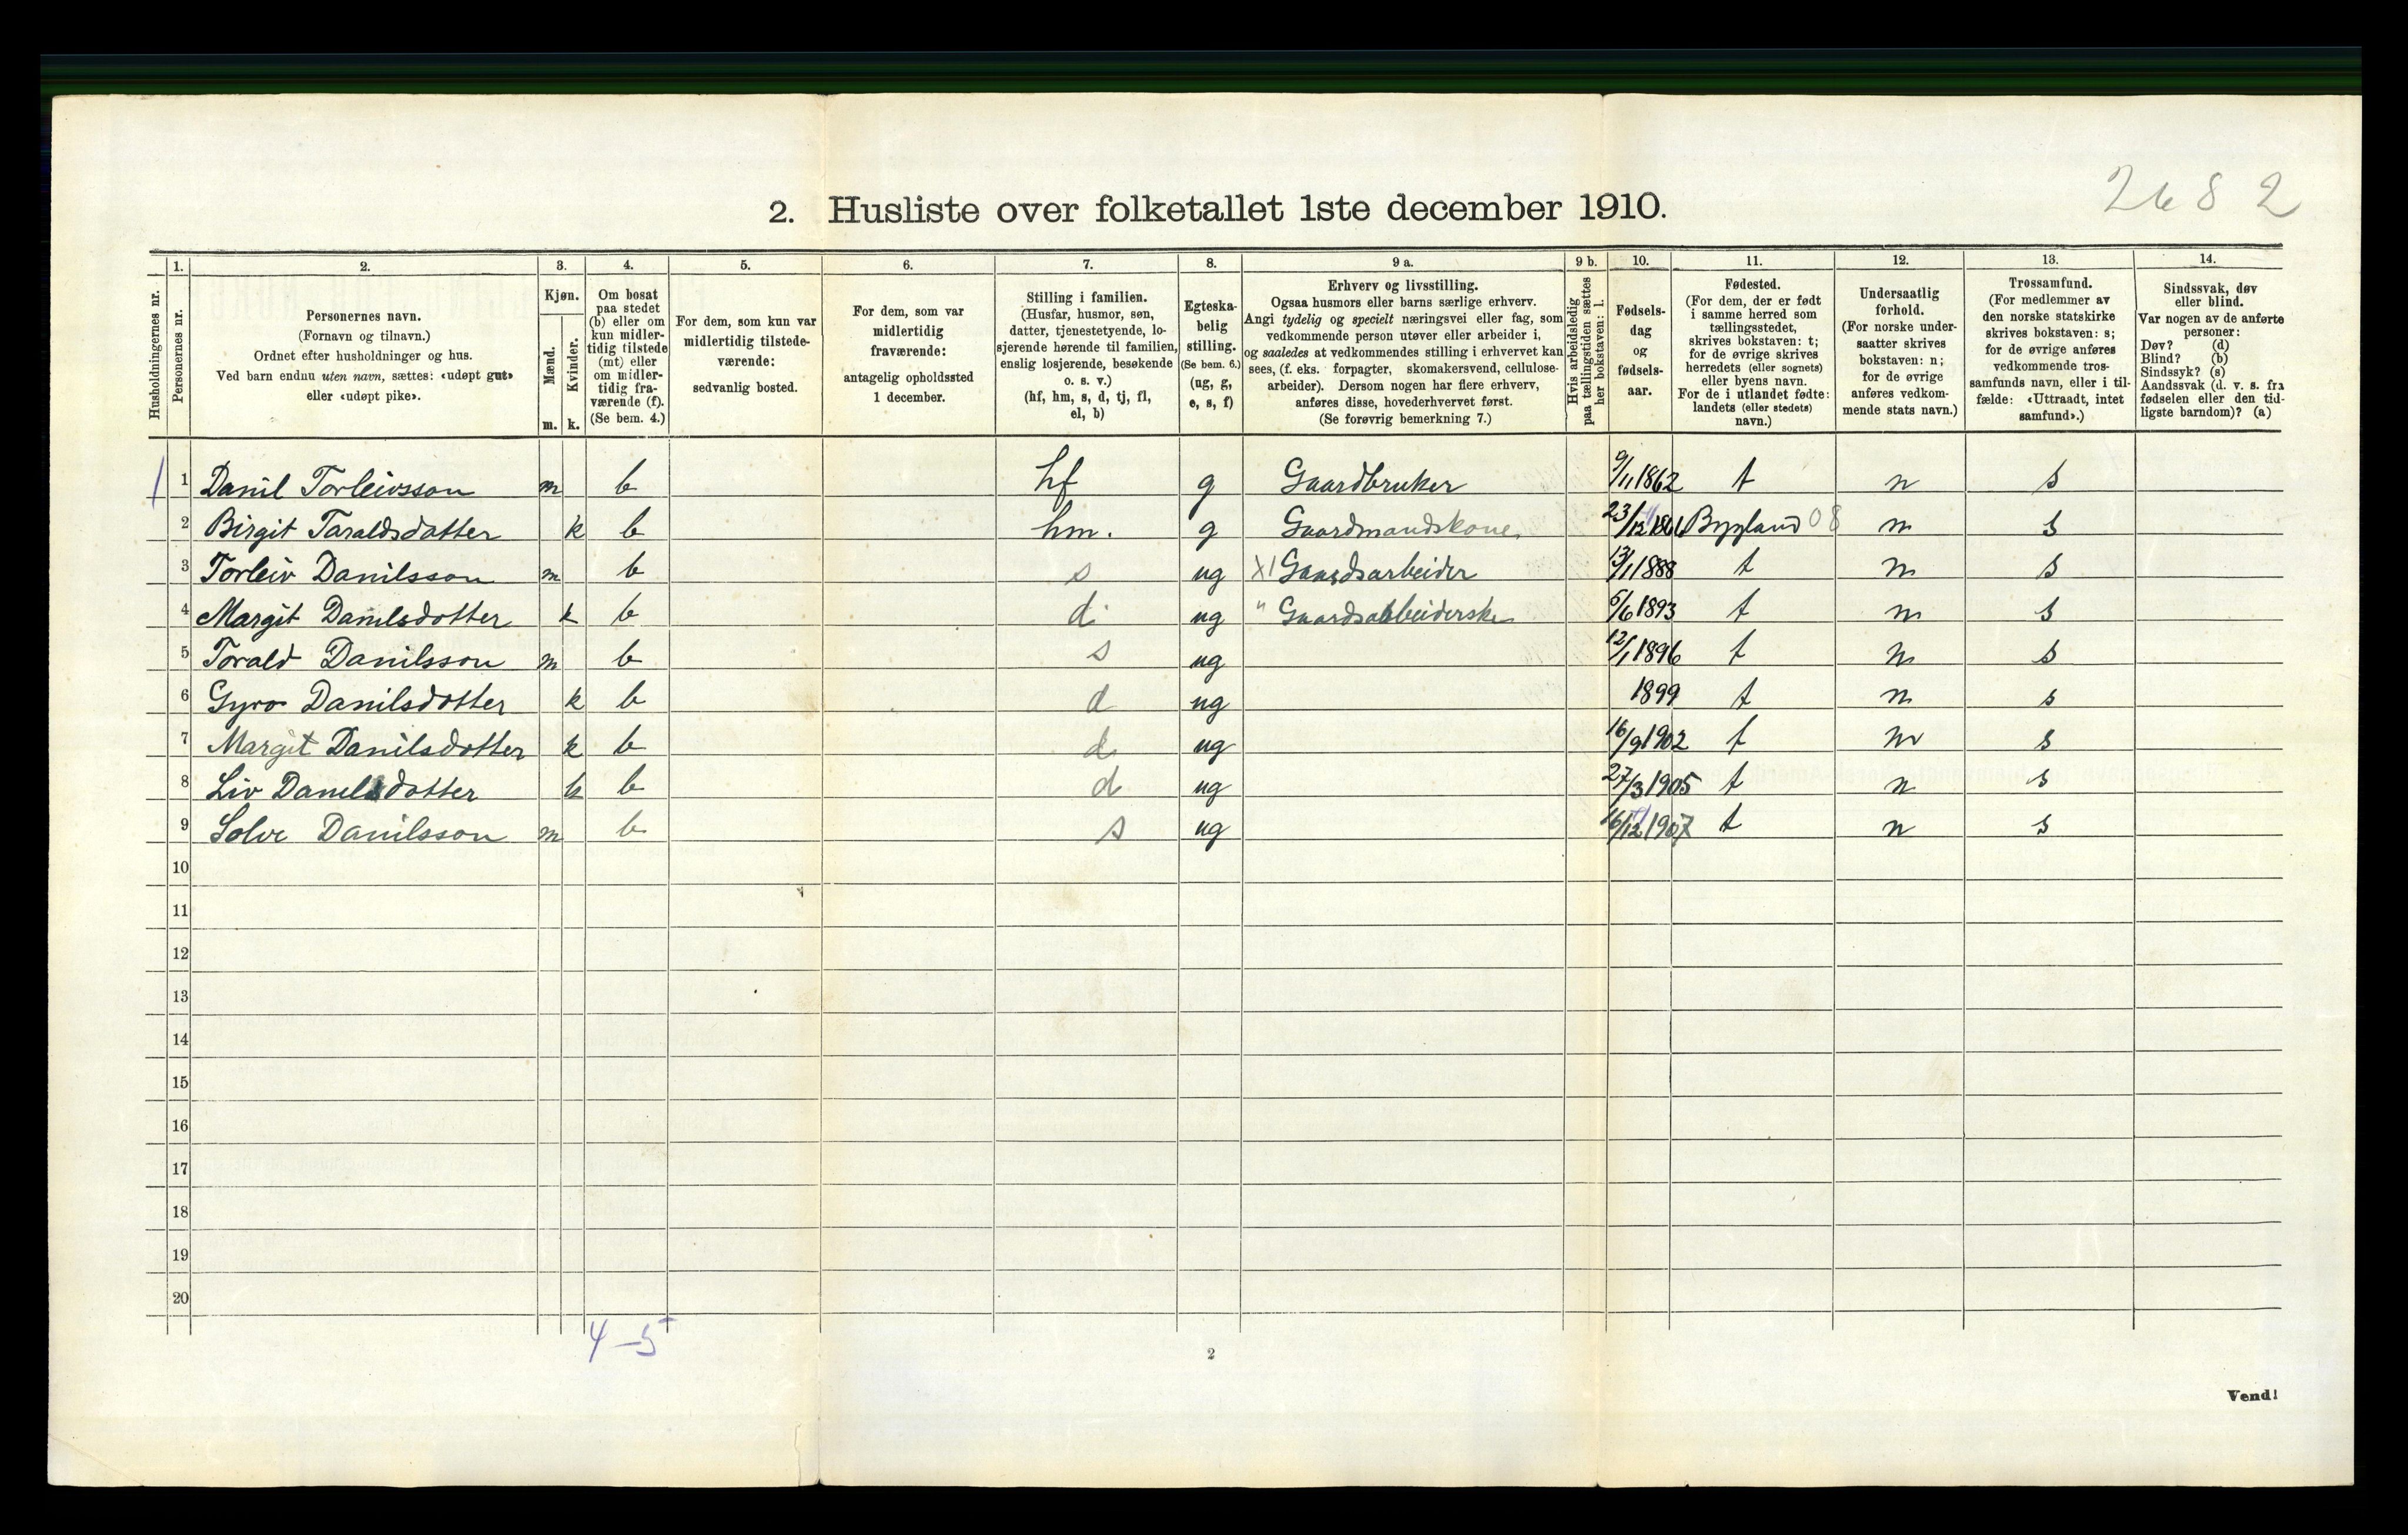 2682
2. Husliste over folketallet 1ste december 1910.
Husholdningernes nr.
1.
Personernes nr.
2.
Personernes navn.
(Fornavn og tilnavn.)
Ordnet efter husholdninger og hus.
Ved barn endnu uten navn, sættes: «udøpt gut»
eller «udøpt pike».
3.
Kjøn.
Mænd.
Kvinder.
m. k.
4.
Om bosat
paa stedet
(b) eller om
kun midler-
tidig tilstede
(mt) eller
om midler-
tidig fra-
værende (f).
(Se bem. 4.)
5.
For dem, som kun var
midlertidig tilstede-
værende:
sedvanlig bosted.
6.
For dem, som var
midlertidig
fraværende:
antagelig opholdssted
1 december.
7.
Stilling i familien.
(Husfar, husmor, søn,
datter, tjenestetyende, lo-
sjerende hørende til familien,
enslig losjerende, besøkende
o. s. v.)
(hf, hm, s, d, tj, fl,
el, b)
8.
Egteska-
belig
stilling.
(Se bem. 6.)
(ug, g,
e, s, f)
9 a.
Erhverv og livsstilling.
Ogsaa husmors eller barns særlige erhverv.
Angi tydelig og specielt næringsvei eller fag, som
vedkommende person utøver eller arbeider i,
og saaledes at vedkommendes stilling i erhvervet kan
sees, (f. eks. forpagter, skomakersvend, cellulose-
arbeider). Dersom nogen har flere erhverv,
anføres disse, hovederhvervet først.
(Se forøvrig bemerkning 7.)
9 b.
Hvis arbeidsledig
paa tællingstiden sættes
her bokstaven: l.
10.
Fødsels-
dag
og
fødsels-
aar.
11.
Fødested.
(For dem, der er født
i samme herred som
tællingsstedet,
skrives bokstaven: t;
for de øvrige skrives
herredets (eller sognets)
eller byens navn.
For de i utlandet fødte:
landets (eller stedets)
navn.)
12.
Undersaatlig
forhold.
(For norske under-
saatter skrives
bokstaven: n;
for de øvrige
anføres vedkom-
mende stats navn.)
13.
Trossamfund.
(For medlemmer av
den norske statskirke
skrives bokstaven: s;
for de øvrige anføres
vedkommende tros-
samfunds navn, eller i til-
fælde: «Uttraadt, intet
samfund».)
14.
Sindssvak, døv
eller blind.
Var nogen av de anførte
personer:
Døv? (d)
Blind? (b)
Sindssyk? (s)
Aandssvak (d. v. s. fra
fødselen eller den tid-
ligste barndom)? (a)
1 1 Danil Torleivsson m b hf g Gaardbruker 9/11 1862 t n s
2 Birgit Taraldsdatter k b hm. g Gaardmandskone 23/12 1861 Bygland 08 n s
3 Torleiv Danilsson m b s ug X1 Gaardsarbeider 13/1 1888 t n s
4 Margit Danilsdotter k b d ug " Gaardsarbeiderske 5/6 1893 t n s
5 Torald Danilsson m b s ug 12/1 1896 t n s
6 Gyro Danilsdotter k b d ug 1899 t n s
7 Margit Danilsdotter k b d ug 16/9 1902 t n s
8 Liv Danilsdotter k b d ug 27/3 1905 t n s
9 Solve Danilsson m b s ug 16/12 1907 t n s
10
11
12
13
14
15
16
17
18
19
20
4-5
2
Vend!